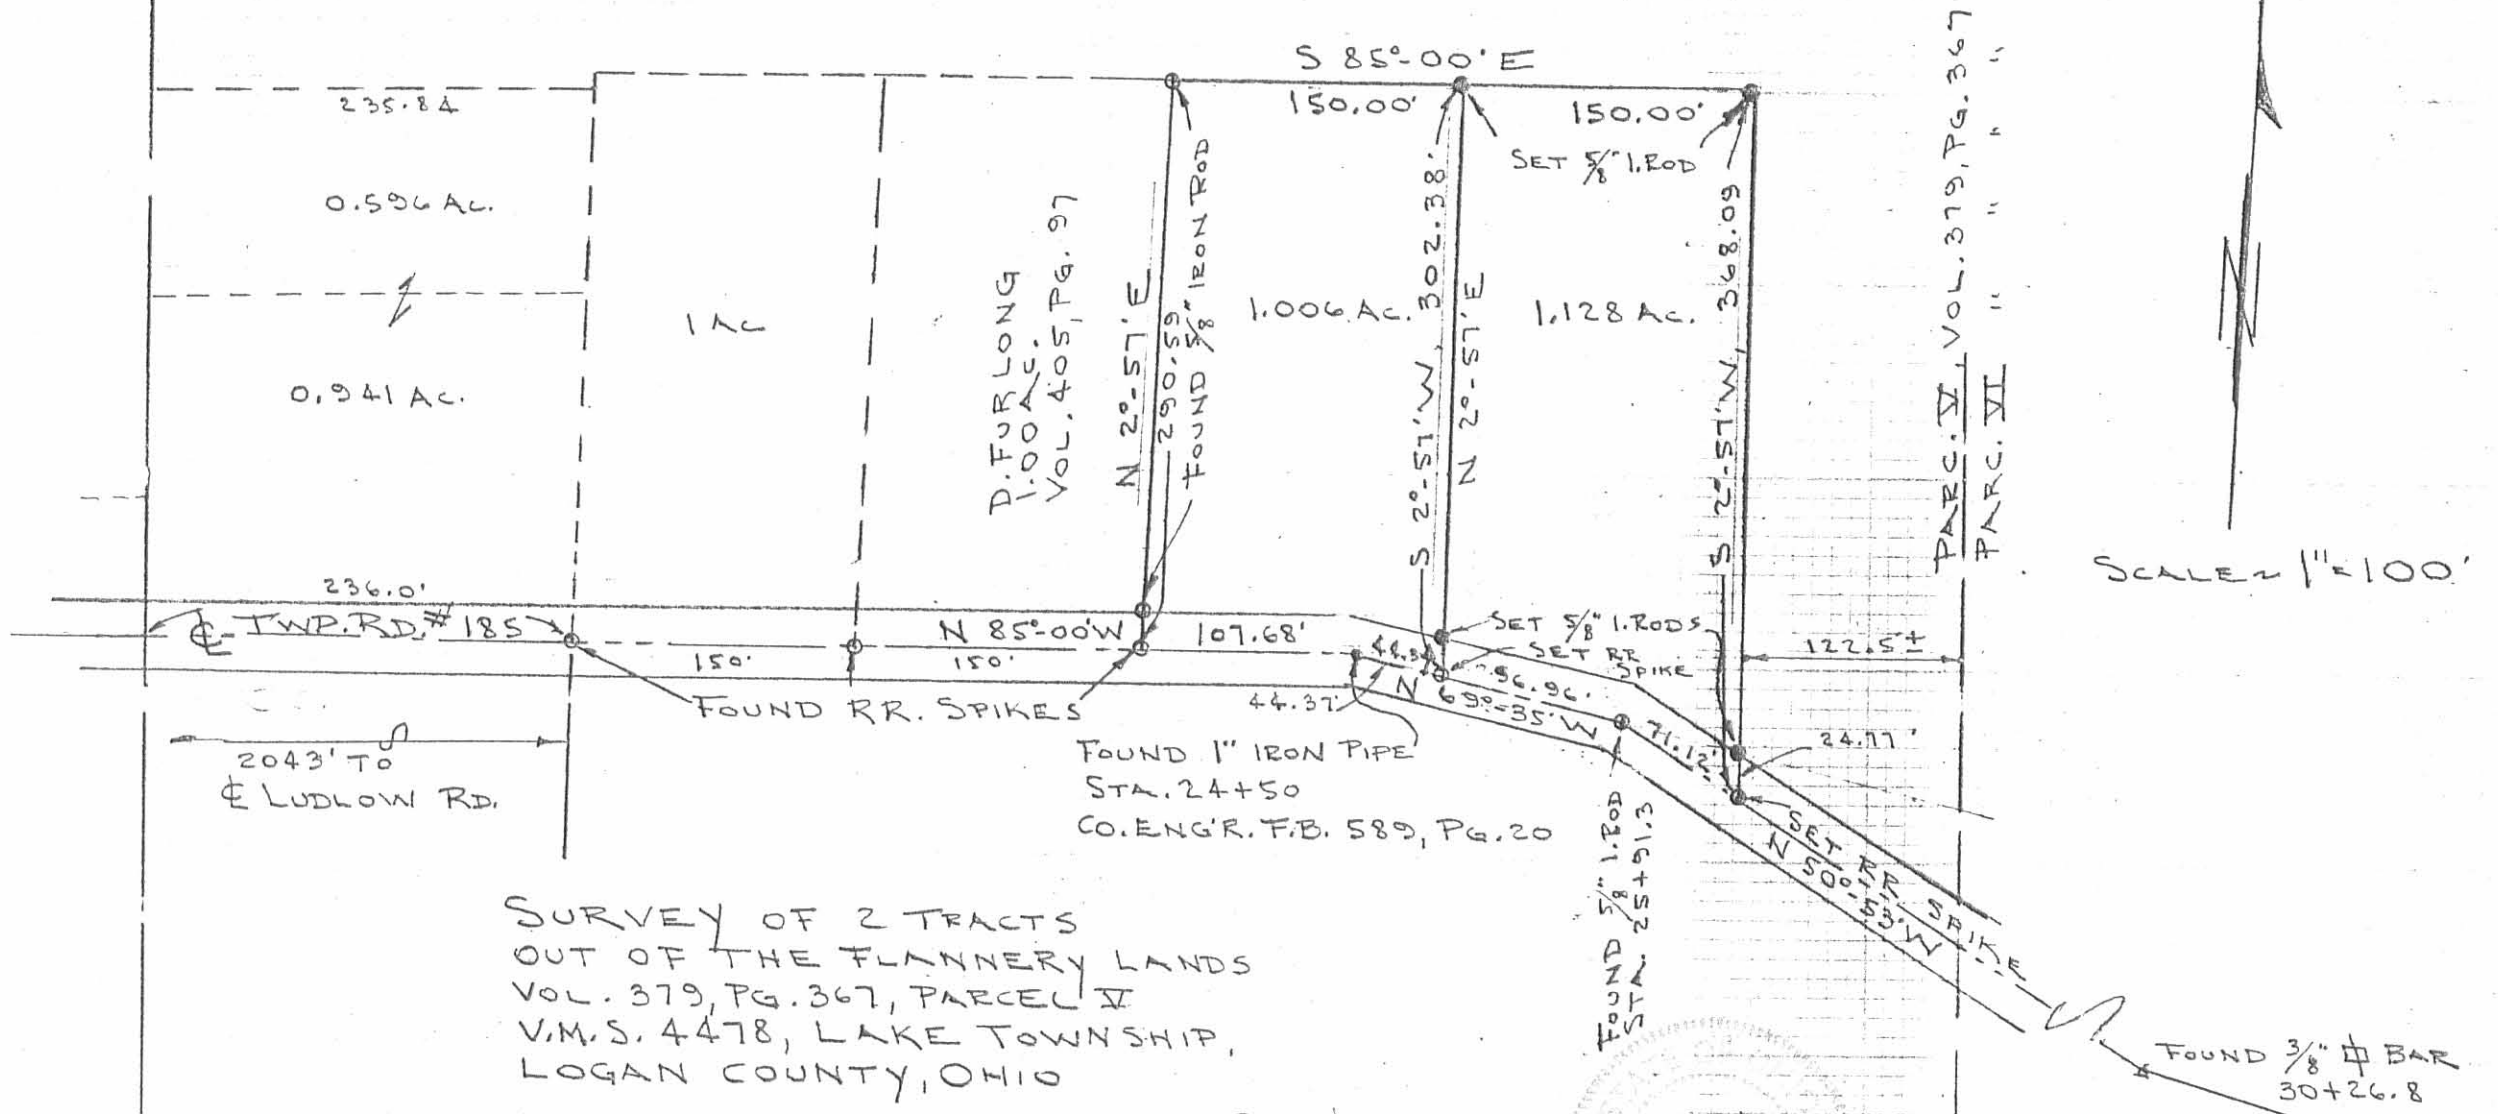 S 85°-00' E
150.00'
150.00'
SET 5/8" I.ROD
235.84
0.596 AC.
0.941 AC.
1 AC
D. FURLONG
1.00 AC.
VOL. 405, PG. 97
N 2°-57' E
290.59
FOUND 5/8" IRON ROD
1.006 AC.
S 2°-57' W, 302.38'
N 2°-57' E
1.128 AC.
S 2°-57' W, 368.09
PARC. V, VOL. 379, PG. 367
PARC. VI " " " "
N
SCALE ~ 1"=100'
236.0'
℄ TWP. RD. # 185
N 85°-00' W
107.68'
150'
150'
SET 5/8" I.RODS
SET RR
SPIKE
122.5±
44.37'
96.96'
N 69°-35' W
71.12'
24.77'
FOUND RR. SPIKES
2043' TO
℄ LUDLOW RD.
FOUND 1" IRON PIPE
STA. 24+50
CO. ENG'R. F.B. 589, PG. 20
FOUND 5/8" I.ROD
STA. 25+91.3
SET RR SPIKE
N 50°-53' W
SURVEY OF 2 TRACTS
OUT OF THE FLANNERY LANDS
VOL. 379, PG. 367, PARCEL V
V.M.S. 4478, LAKE TOWNSHIP,
LOGAN COUNTY, OHIO
FOUND 3/8" BAR
30+26.8